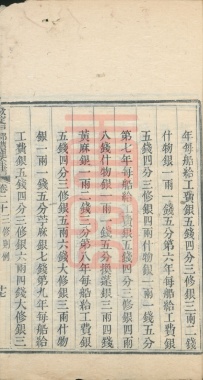 年每船給工費銀五錢四分三修銀三兩二錢
什物銀一兩一錢五分第六年每船給工費銀
五錢四分三修銀四兩什物銀一兩一錢五分
第七年每船給工費銀五錢四分三修銀四兩
八錢什物銀一兩二錢五分換篷銀三兩四錢
黃麻銀一兩二錢三分第八年每船給工費銀
五錢四分三修銀五兩六錢大修銀三兩什物
銀一兩一錢五分苧麻銀七錢第九年每船給
工費銀五錢四分三修銀六兩四錢大修銀三
卷二十二 修則例